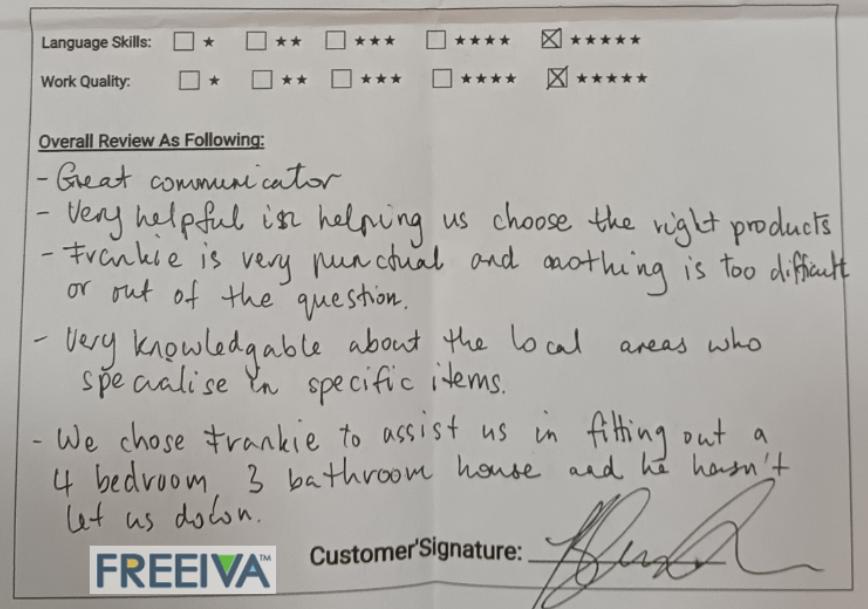 Language Skills: ☐ ★ ☐ ★★ ☐ ★★★ ☐ ★★★★ ☒ ★★★★★
Work Quality: ☐ ★ ☐ ★★ ☐ ★★★ ☐ ★★★★ ☒ ★★★★★
Overall Review As Following:
- Great communicator
- Very helpful in helping us choose the right products
- Frankie is very punctual and nothing is too difficult
or out of the question.
- Very knowledgable about the local areas who
specialise in specific items.
- We chose Frankie to assist us in fitting out a
4 bedroom 3 bathroom house and he hasn't
let us down.
FREEIVA™
Customer'Signature: